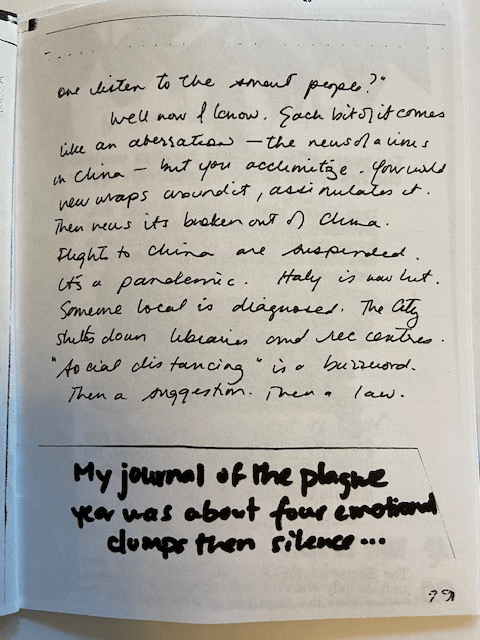 one listen to the smart people?"
Well now I know. Each bit of it comes
like an aberration — the news of a virus
in China — but you acclimitize. Your world
view wraps around it, assimulates it.
Then news its broken out of China.
Flights to China are suspended.
It's a pandemic. Italy is now hit.
Someone local is diagnosed. The City
shuts down libraries and rec centres.
"Social distancing" is a buzzword.
Then a suggestion. Then a law.
My journal of the plague
year was about four emotional
dumps then silence...